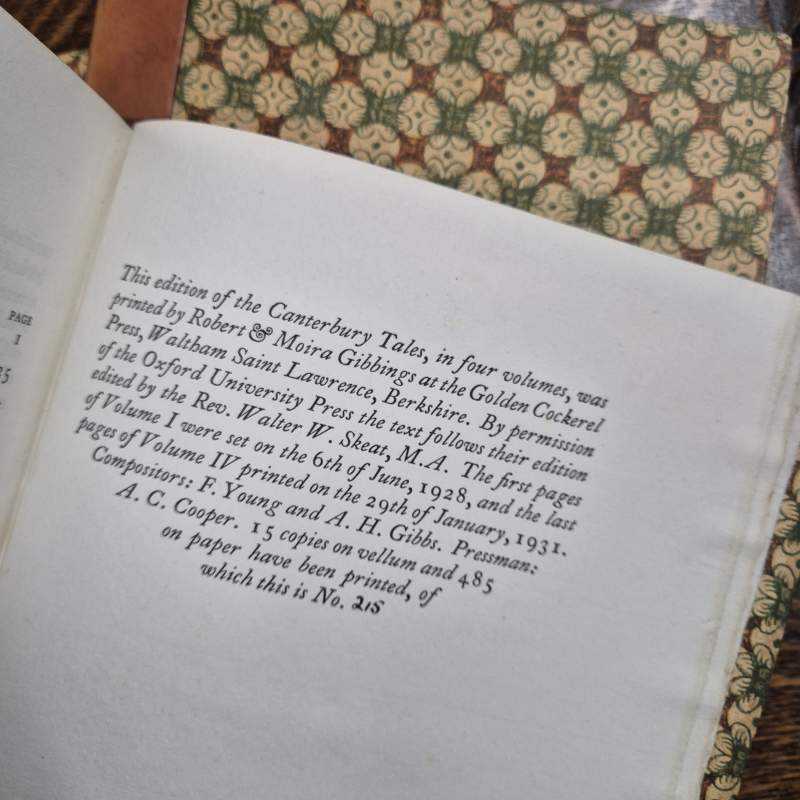 PAGE
I
This edition of the Canterbury Tales, in four volumes, was
printed by Robert & Moira Gibbings at the Golden Cockerel
Press, Waltham Saint Lawrence, Berkshire. By permission
of the Oxford University Press the text follows their edition
edited by the Rev. Walter W. Skeat, M.A. The first pages
of Volume I were set on the 6th of June, 1928, and the last
pages of Volume IV printed on the 29th of January, 1931.
Compositors: F. Young and A. H. Gibbs. Pressman:
A. C. Cooper. 15 copies on vellum and 485
on paper have been printed, of
which this is No. 215